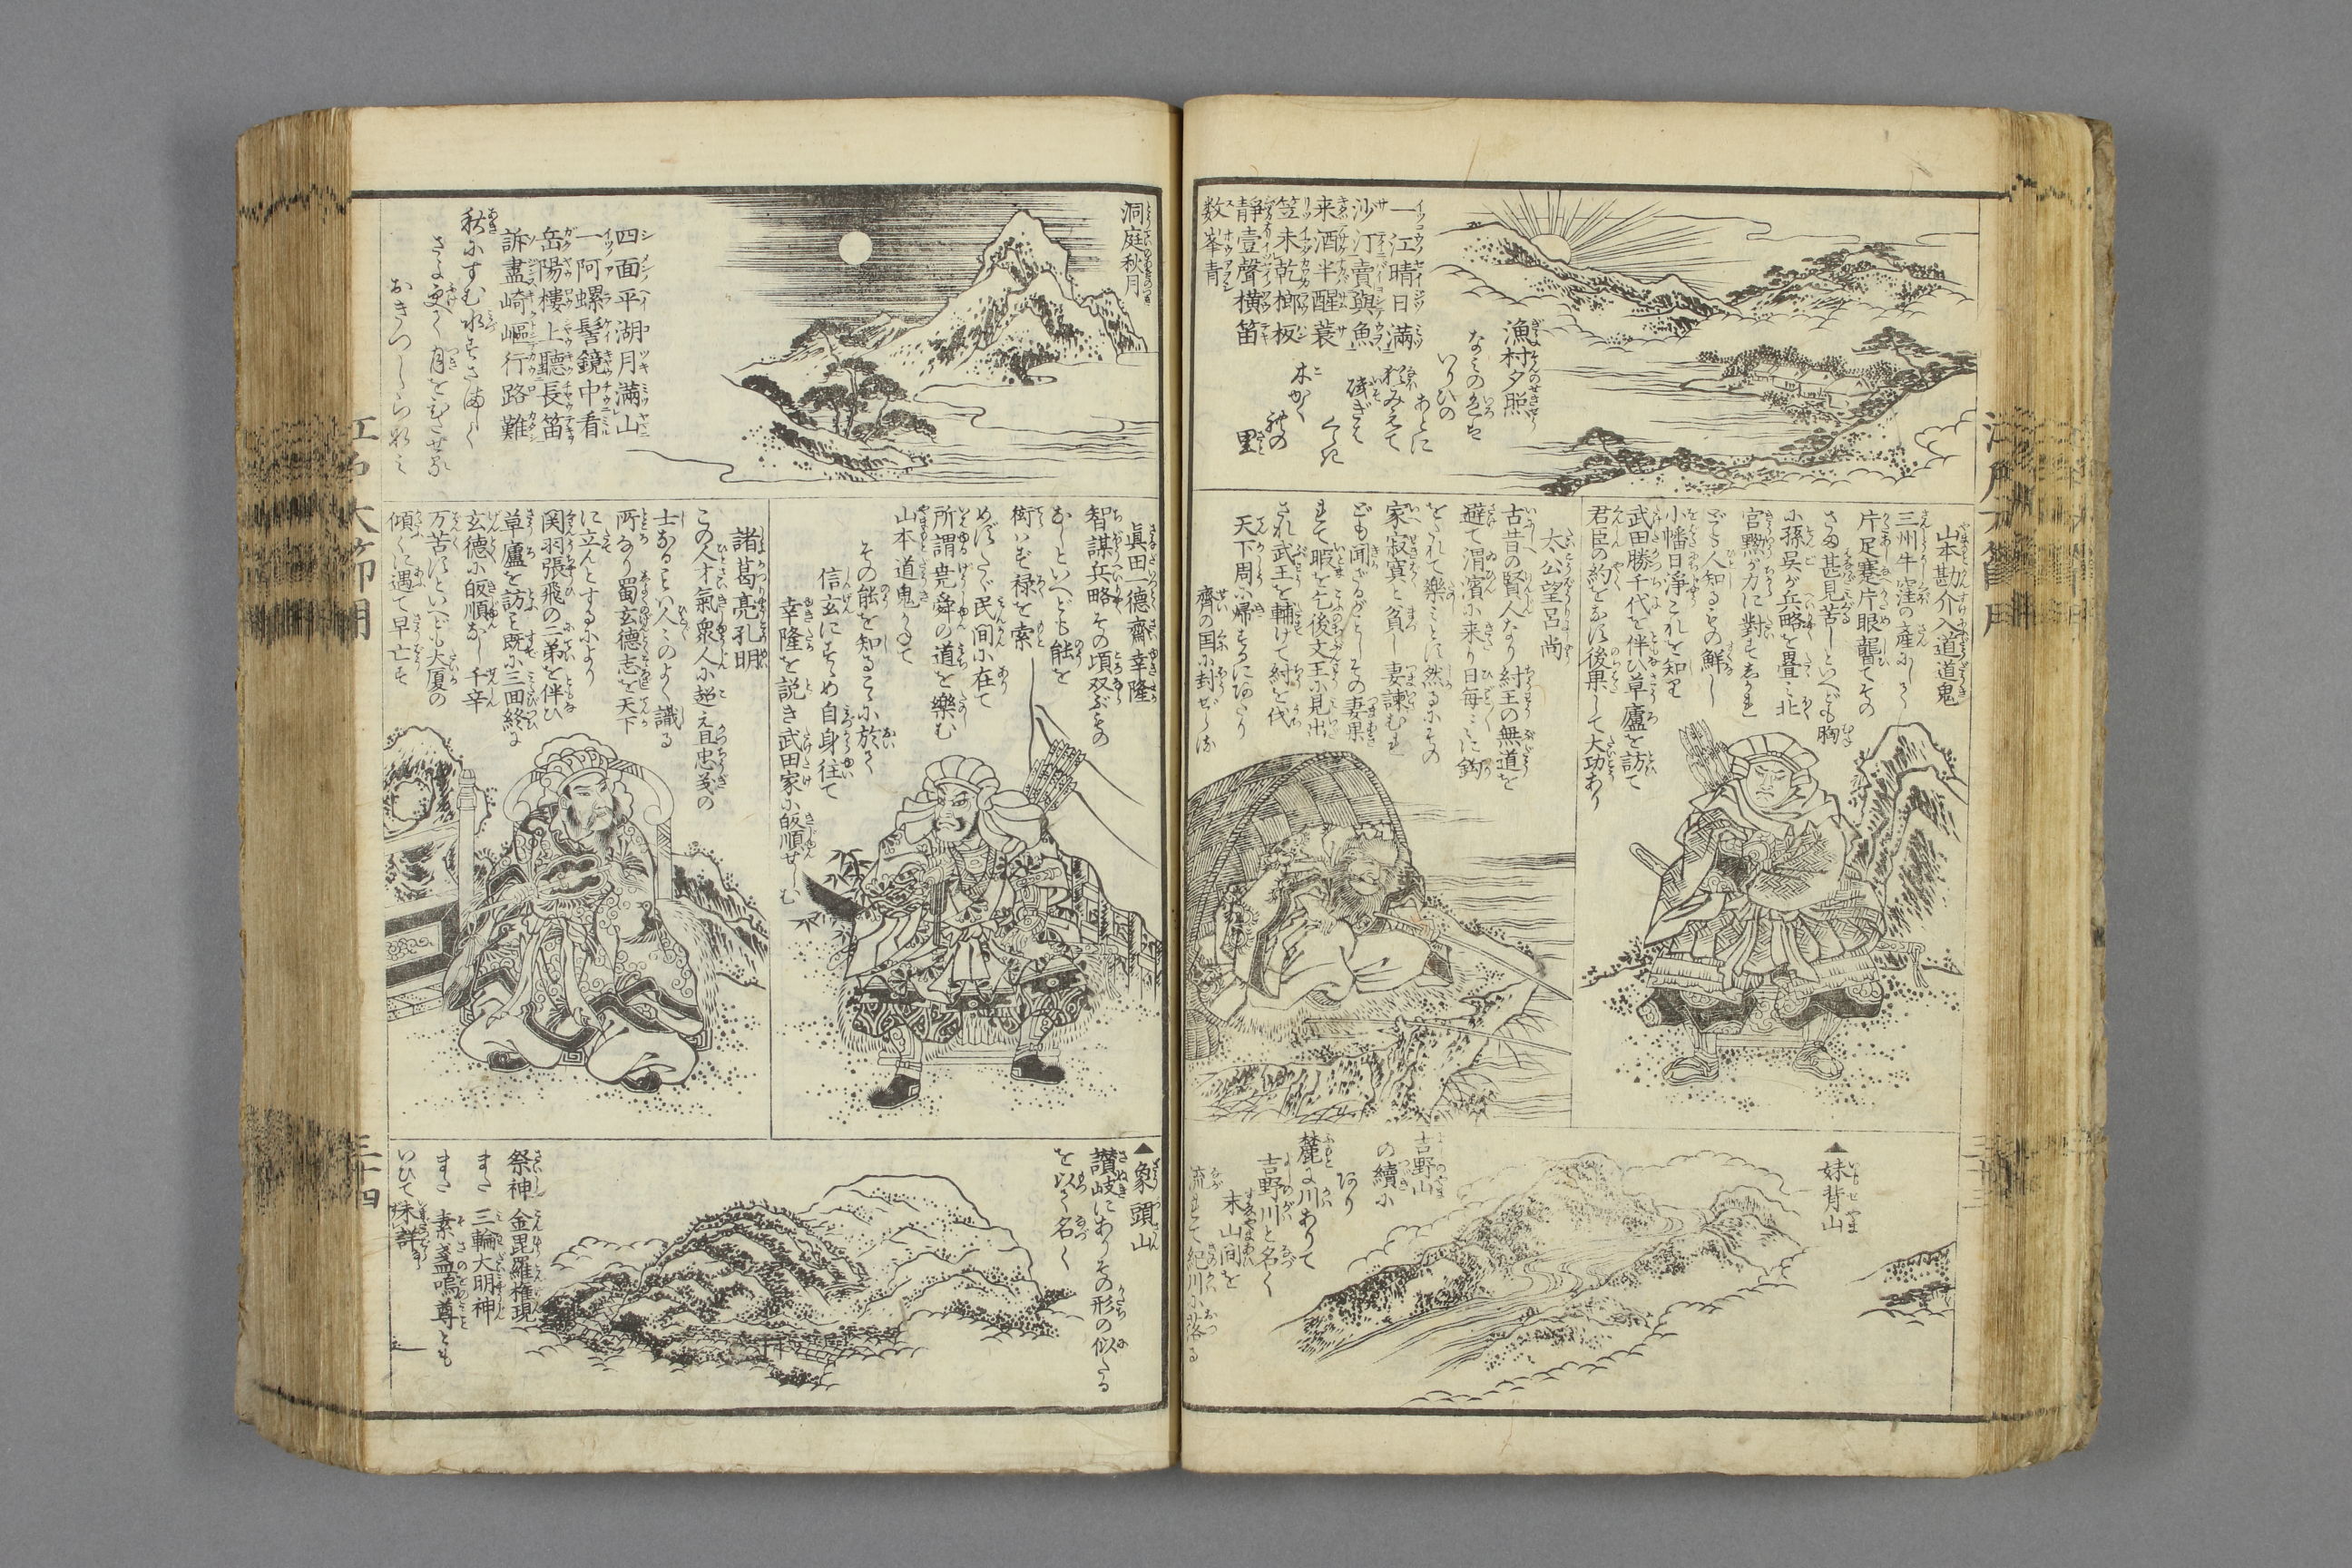 漁村夕照
一江晴日満
沙汀賣與魚
来酒半醒蓑
笠未乾榔板
静壹聲横笛
数峯青
なみの色は
いりひの
あとに
猶みえて
磯ぎは
くらき
木がくれの
里
山本勘介入道道鬼
三州牛窪の産にして
片足蹇片眼瞽てその
さま甚見苦しといへども胸
に孫呉が兵略を畳み北
宮黝が力に對す
どき人知るもの鮮し
小幡日浄これを知り
武田勝千代を伴ひ草廬を訪て
君臣の約をなす後果して大功あり
太公望呂尚
古昔の賢人なり紂王の無道を
避て渭濱に来り日毎々々に釣
をたれて樂みとす然るにその
家寂寞と貧し妻諫むれ
ども聞ざるがごとしその妻果
れて暇を乞後文王に見出
され武王を輔けて紂を伐
天下周に帰するにおよび
齊の国に封ぜらる
▲妹背山
吉野山
の續に
あり
麓に川ありて
吉野川と名く
末山間を
流れて紀川に落る
洞庭秋月
四面平湖月満山
一阿螺髻鏡中看
岳陽樓上聽長笛
訴盡崎嶇行路難
秋にすむ水すさまじく
さよ更て月をひたせる
おきつしら浪
眞田一德齋幸隆
智謀兵略その頃双ぶもの
なしといへども能を
衒いず禄を索
めずたゞ民間に在て
所謂尭舜の道を樂む
山本道鬼かねて
その能を知るこゝに於て
信玄にすゝめ自身往て
幸隆を説き武田家に皈順せしむ
諸葛亮孔明
この人才氣衆人に超え且忠義の
士なることは人々のよく識る
所なり蜀玄德志を天下
に立んとするに
関羽張飛の二弟を伴ひ
草廬を訪と既に三回終に
玄德に皈順なし千辛
万苦すといへども大厦の
傾くに遇て早亡す
▲象頭山
讃岐にありその形の似たる
を以て名く
祭神 金毘羅権現
また 三輪大明神
また 素盞嗚尊とも
いひて未詳
三十四